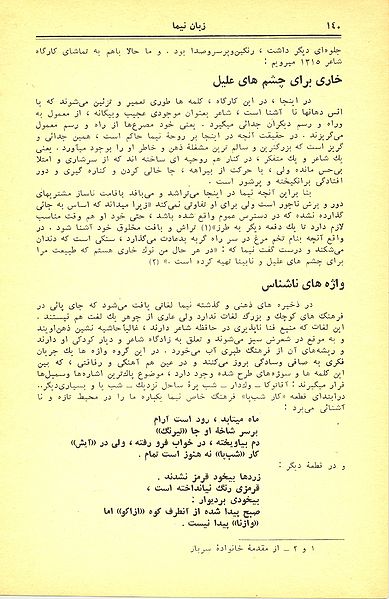 ۱۴۰ زبان نیما
جلوه‌ای دیگر داشت ، رنگین‌وپرسروصدا بود . و ما حالا باهم به تماشای کارگاه
شاعر ۱۳۱۵ میرویم :
خاری برای چشم های علیل
در اینجا ، در این کارگاه ، کلمه ها طوری تعمیر و تزئین می‌شوند که با
انس دهانها نا آشنا است ، شاعر بعنوان موجودی عجیب وبیگانه ، از معمول به
وراه و رسم دیگران جدائی میگیرد . یعنی خود مصرع‌ها از راه و رسم معمول
می‌گریزند . در حقیقت آنچه در اینجا بر روحهٔ نیما حاکم است ، همین جدائی و
گریز است که بزرگترین و سالم ترین مشغلهٔ ذهن و خاطر او را بوجود میاورد . یعنی
یك شاعر و یك متفکر ، در کنار هم روحیه ای ساخته اند که از سرشاری و امتلا
بی‌حس مانده ولی ، با حرکت از بیراهه ، جا خالی کردن و کناره گیری و دور
افتادگی برانگیخته و پرشور است .
بنا براین آنچه نیما در اینجا می‌تراشد و می‌بافد باقامت ناساز مشتریهای
دور و برش ناجور است ولی برای او تفاوتی نمی‌کند «زیرا میداند که اساس به جائی
گذارده نشده که در دسترس عموم واقع شده باشد ، حتی خود او هم وقت مناسب
لازم دارد تا یك دفعه دیگر به طرز»(۱) تراش و بافت مخلوق خود آشنا شود . در
واقع آنچه بنام تخم مرغ در سر راه گربه بدعادت می‌گذارد ، سنگی است که دندان
می‌شکند و درست گفت نیما که : «در هر حال من نوك خاری هستم که طبیعت مرا
برای چشم های علیل و نابینا تهیه کرده است .» (۲)
واژه های ناشناس
در ذخیره های ذهنی و گذشته نیما لغاتی یافت می‌شود که جای پائی در
فرهنگ های کوچك و بزرگ لغات ندارد ولی عاری از جوهر یك لغت هم نیستند .
این لغات که منبع فنا ناپذیری در حافظه شاعر دارند ، غالباحاشیه نشین ذهن‌اویند
و به موقع در شعرش سبز می‌شوند و تعلق به زادگاه شاعر و دیار کودکی او دارند
و ریشه‌های آن از فرهنگ طبری آب می‌خورد . در این گروه واژه ها یك جریان
فکری به صافی وسادگی بروز می‌کنند و در عین هم آهنگی و رفاقتی ، که بین
این کلمه ها و سوژه‌های طرح شده وجود دارد ، موضوع پاك‌ترین اشاره‌ها وسمبل‌ها
قرار میگیرند : آقاتوکا ــ وك‌دار ــ شب پرهٔ ساحل نزدیك ــ شب پا و بسیاری‌دیگر..
درابتدای قطعه «کار شب‌پا» فرهنگ خاص نیما یکباره ما را در محیط تازه و نا
آشنائی می‌برد :
ماه میتابد ، رود است آرام
برسر شاخهٔ او جا «تیرنگ»
دم بیاویخته ، در خواب فرو رفته ، ولی در «آیش»
کار «شب‌پا» نه هنوز است تمام .
و در قطعهٔ دیگر :
زردها بیخود قرمز نشدند .
قرمزی رنگ نیانداخته است ،
بیخودی بردیوار :
صبح پیدا شده از آنطرف کوه «ازاکو» اما
«وازنا» پیدا نیست .
۱ و ۲ ــ از مقدمهٔ خانوادهٔ سرباز